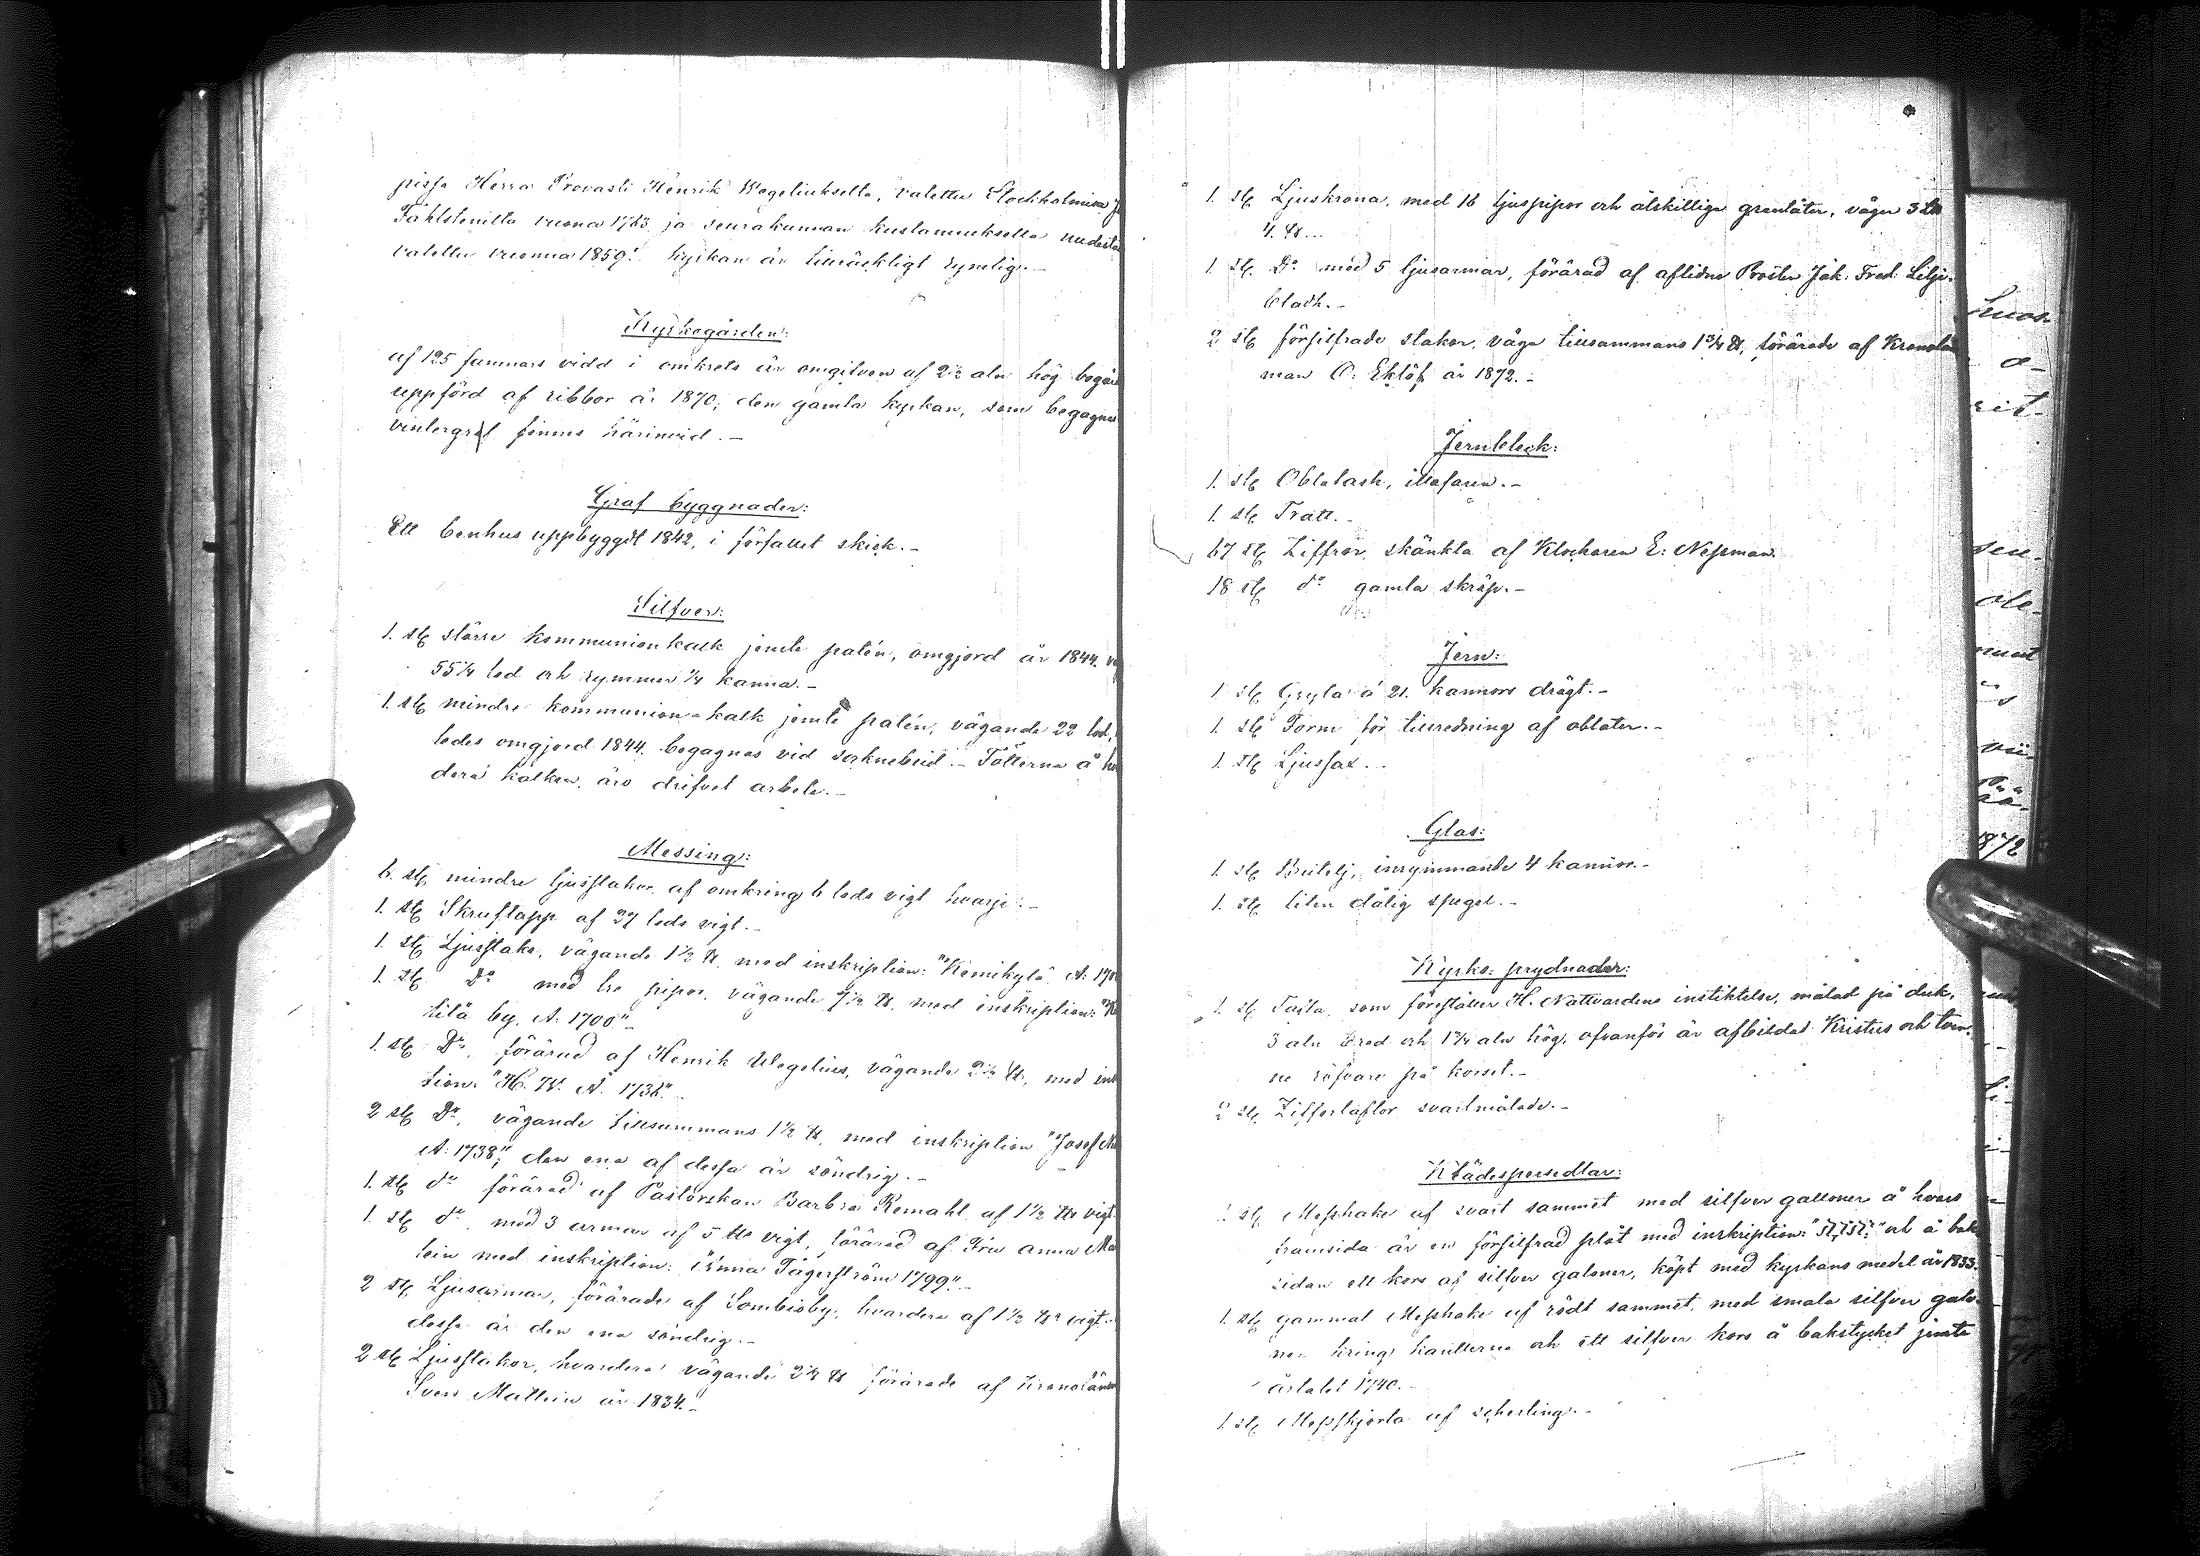 pissa Herra Provasti Henrik Wegeliukselta, valettu Stockholmissa
Fahlstenilta vuona 1763 ja seurakunnan kustannuksella uudesta
valettu vuonna 1859." Kyrkan är tillräckligt rymlig.-
Kyrkogården:
af 125 famnars vidd i omkrets är omgifven af 2½ aln hög
uppförd af ribbor år 1870; den gamla kyrkan, som begagnas
vintergraf finnes härinvid.-
Graf byggnader:
Ett benhus uppbyggdt 1842, i förfallet skick.-
Silfver:
1. st större kommunion kalk jemte patén, omgjord år 1844.
55¼ lod och rymmer ¼ kanna.-
1. st mindre kommunion-kalk jemte patén, vägande 22 lod,
ledes omgjord 1844. begagnas vid socknebud.- Fötterna å
dera kalken, äro drifvet arbete.-
Messing:
6. st mindre ljusstakar af omkring 6 lods vigt hvarje.-
1. st Skruftapp af 27 lods vigt.-
1. st Ljusstake, vägande 1½ ℔, med inskription: "Kemikylä A: 170
1. st Do med tre pipor, vägande 7½ ℔, med inskription:
tilä by, A. 1700".-
1. st Do, förärad af Henrik Wegelius, vägande 2½ ℔, med
tion: "H. W. A. 1738."-
2 st Do, vägande tillsammans 1½ ℔, med inskription "Josef
A: 1738"; den ena af dessa är söndrig.-
1. st do förärad af Pastorskan Barbra Remahl, af 1½ ℔s vigt
1. st do, med 3 armar af 5 ℔s vigt, förärad af Fru Anna
lein med inskription: "Anna Tägerström 1799".-
2 st Ljusarmar, förärade af Sombioby, hvardera af 1½ ℔s vigt.-
dessa är den ena söndrig.-
2 st Ljusstakar, hvardera vägande 2¾ ℔ förärade af
Sven Mathlein år 1834.-
1. st Ljuskrona, med 16 ljuspipor och åtskilliga granlåter, väger 3
4. ℔...
1. st Do med 5 ljusarmar, förärad af aflidne Prosten Jak. Fred. Lilje-
bladh.-
2 st försilfrade stakar, väga tillsammans 1¾ ℔, förärade af
man O. Eklöf år 1872.-
Jernbleck:
1. st Oblatask, illafaren.-
1. st Tratt.-
67 st Ziffror, skänkta af Klockaren E: Nessman.
18 st do gamla skräp.-
Jern:
1 st Gryta à 21. kannors drägt.-
1. st Form för tillredning af oblater.-
1. st Ljussax..
Glas:
1. st Buteljj, inrymmande 4 kannor.-
1. st liten dålig spegel.-
Kyrko-prydnader:
1. st Tafla, som föreställer H. Nattvardens instiktelse, målad på duk,
3 aln bred och 1¾ aln hög, ofvanför är afbildad Kristus och tven-
ne röfvare på korset.-
2 st Zifferlaflor svartmålade.-
Klädespersedlar:
1. st Messhake af svart sammet med silfver galloner å hvars
framsida är en försilfrad plåt med inskription: och å bak
sidan ett kors af silfver galoner, köpt med kyrkans medel år 1833.
1. st gammal Messhake af rödt sammet, med smala silfver galo-
ner kring kanterna och ett silfver kors å bakstycket jemte
årtalet 1740.-
1. st Messkjorta af scherting.-